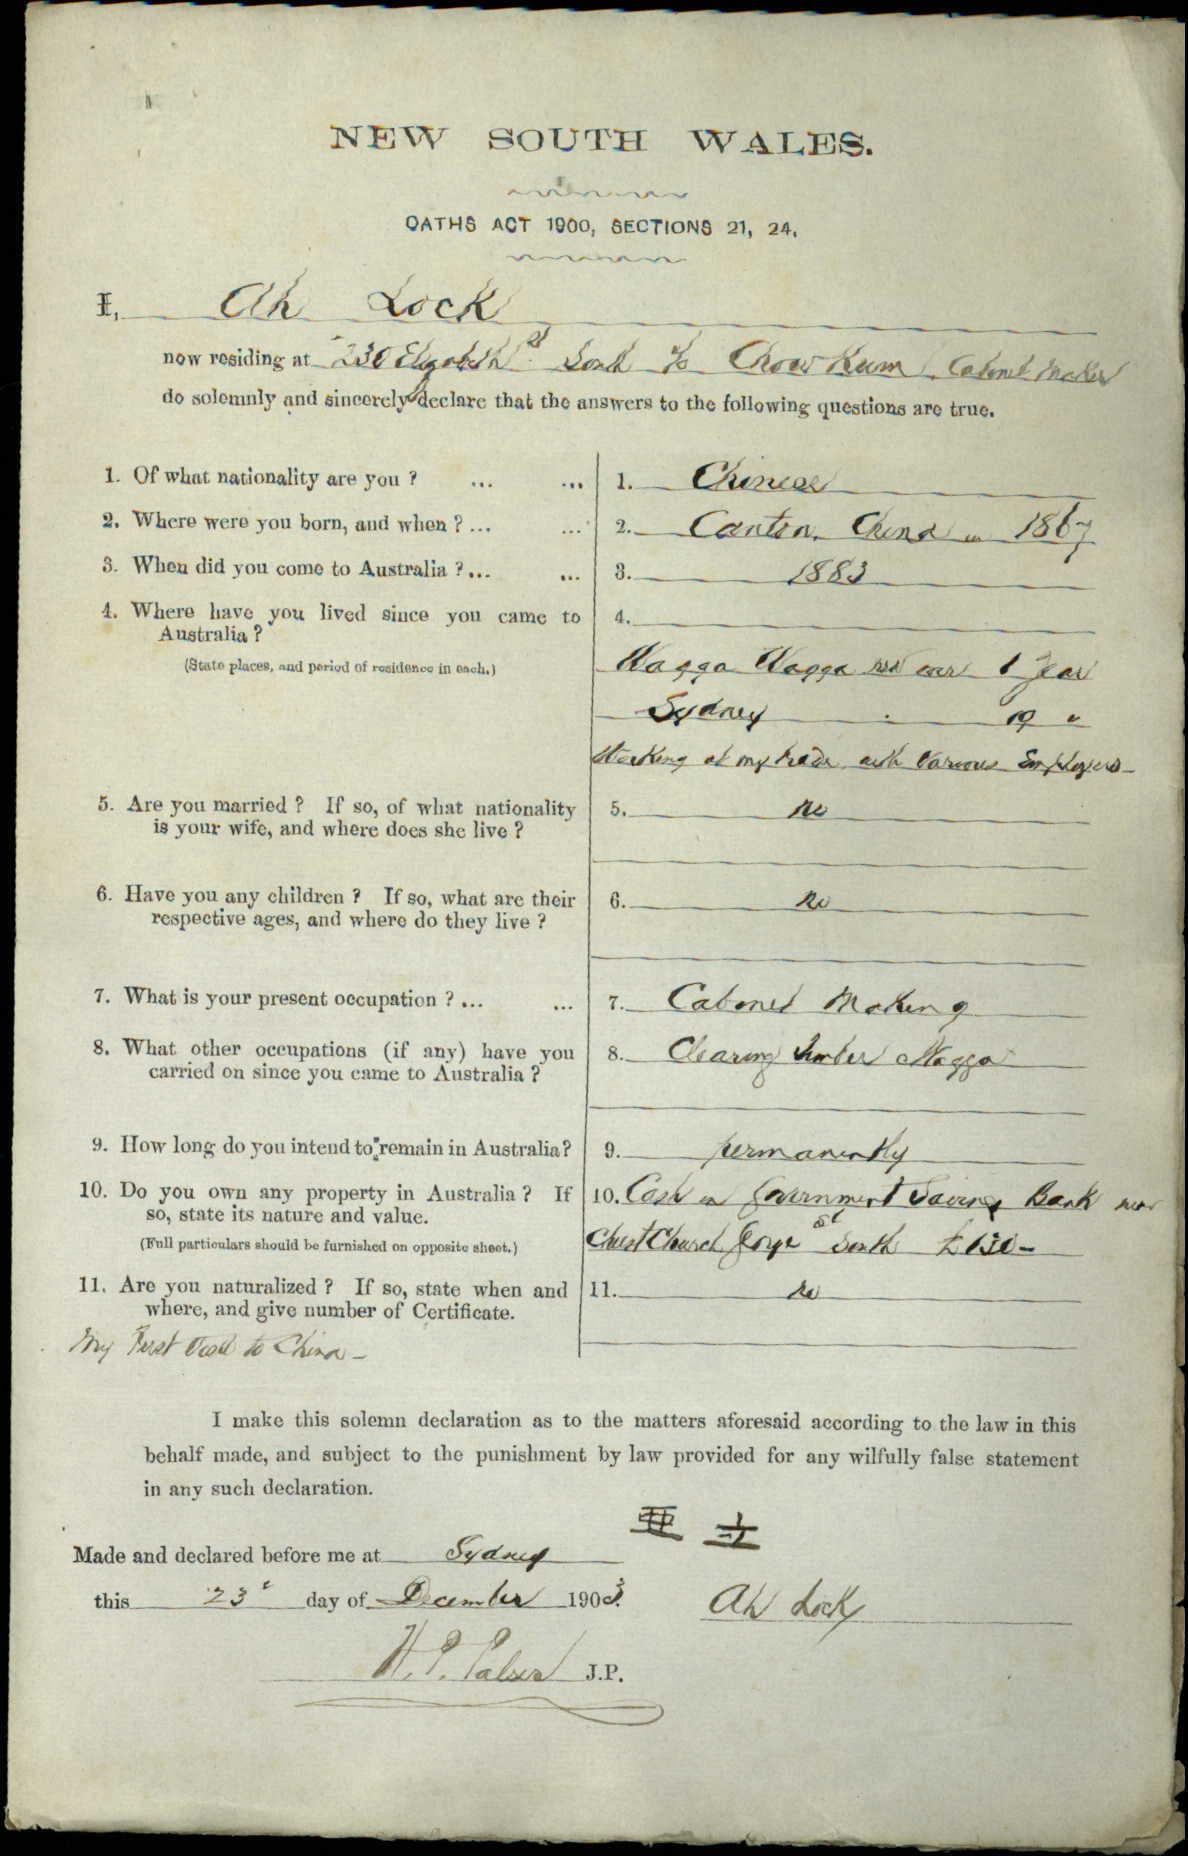 NEW SOUTH WALES.
OATHS ACT 1900, SECTIONS 21, 24.
I, Ah Lock
now residing at 230 Elizabeth St South c/o Chow Kum Cabinet Maker
do solemnly and sincerely declare that the answers to the following questions are true.
1. Of what nationality are you ? ... ... 1. Chinese
2. Where were you born, and when ? ... ... 2. Canton, China in 1867
3. When did you come to Australia ? ... ... 3. 1883
4. Where have you lived since you came to 4.
Australia ?
(State places, and period of residence in each.) Wagga Wagga over 1 year
Sydney 19 "
Working at my trade with various Employers -
5. Are you married ? If so, of what nationality 5. no
is your wife, and where does she live ?
6. Have you any children ? If so, what are their 6. no
respective ages, and where do they live ?
7. What is your present occupation ? ... ... 7. Cabinet Making
8. What other occupations (if any) have you 8. Clearing timber Wagga
carried on since you came to Australia ?
9. How long do you intend to remain in Australia? 9. permanently
10. Do you own any property in Australia ? If 10. Cash in Government Savings Bank near
so, state its nature and value. Christ Church George St South £130 -
(Full particulars should be furnished on opposite sheet.)
11. Are you naturalized ? If so, state when and 11. no
where, and give number of Certificate.
My First Visit to China -
I make this solemn declaration as to the matters aforesaid according to the law in this
behalf made, and subject to the punishment by law provided for any wilfully false statement
in any such declaration.
亞 立
Made and declared before me at Sydney
this 23d day of December 1903. Ah Lock
H. P. J.P.